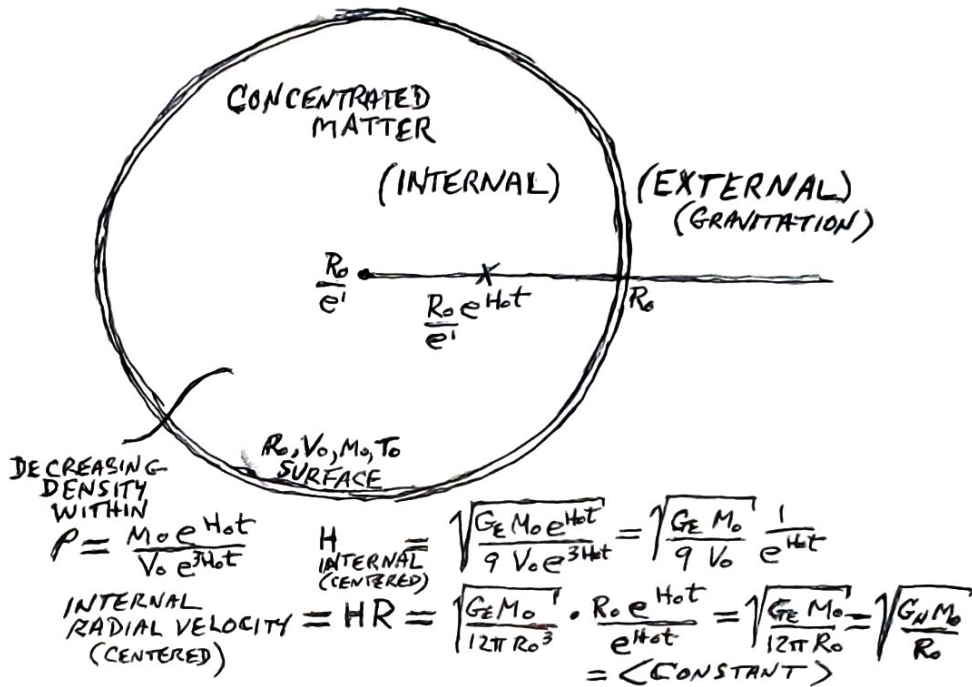 CONCENTRATED
MATTER
(INTERNAL)
(EXTERNAL)
(GRAVITATION)
R₀/e¹
R₀/e¹ e^{H₀t}
R₀
R₀, V₀, M₀, T₀
SURFACE
DECREASING
DENSITY
WITHIN
ρ = M₀ e^{H₀t} / V₀ e^{3H₀t}
H INTERNAL (CENTERED) = √(G_E M₀ e^{H₀t} / 9 V₀ e^{3H₀t}) = √(G_E M₀ / 9 V₀) 1/e^{H₀t}
INTERNAL
RADIAL VELOCITY
(CENTERED)
= HR = √(G_E M₀ / 12π R₀³) · R₀ e^{H₀t} / e^{H₀t} = √(G_E M₀ / 12π R₀) = √(G_N M₀ / R₀)
= <CONSTANT>